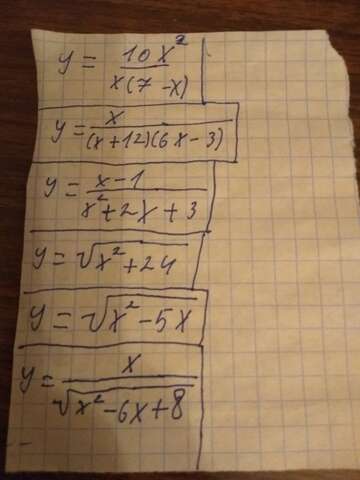 y = 10x² / x(7 - x)
y = x / (x+12)(6x-3)
y = x-1 / x²+2x+3
y = √(x²+24)
y = √(x²-5x)
y = x / √(x²-6x+8)